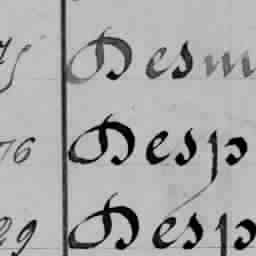 Desm
76 Desp
29 Desp